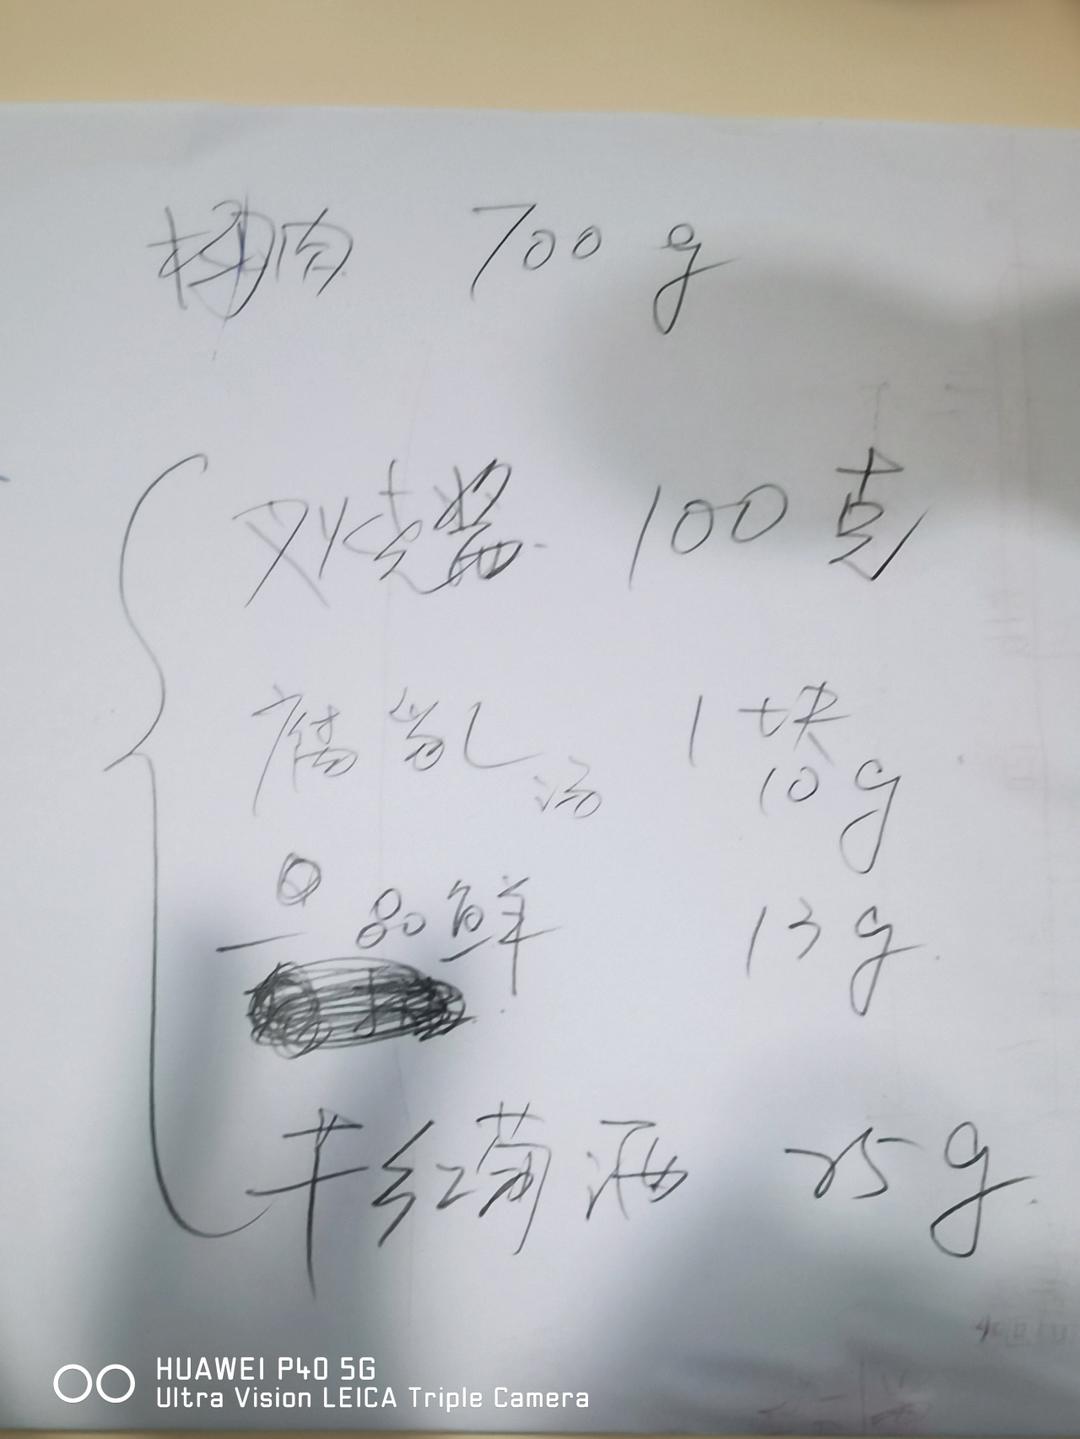 梅肉 700g
叉烧酱 100克
腐乳 1块
汤 10g
一品鲜 13g
干红葡酒 25g
HUAWEI P40 5G
Ultra Vision LEICA Triple Camera